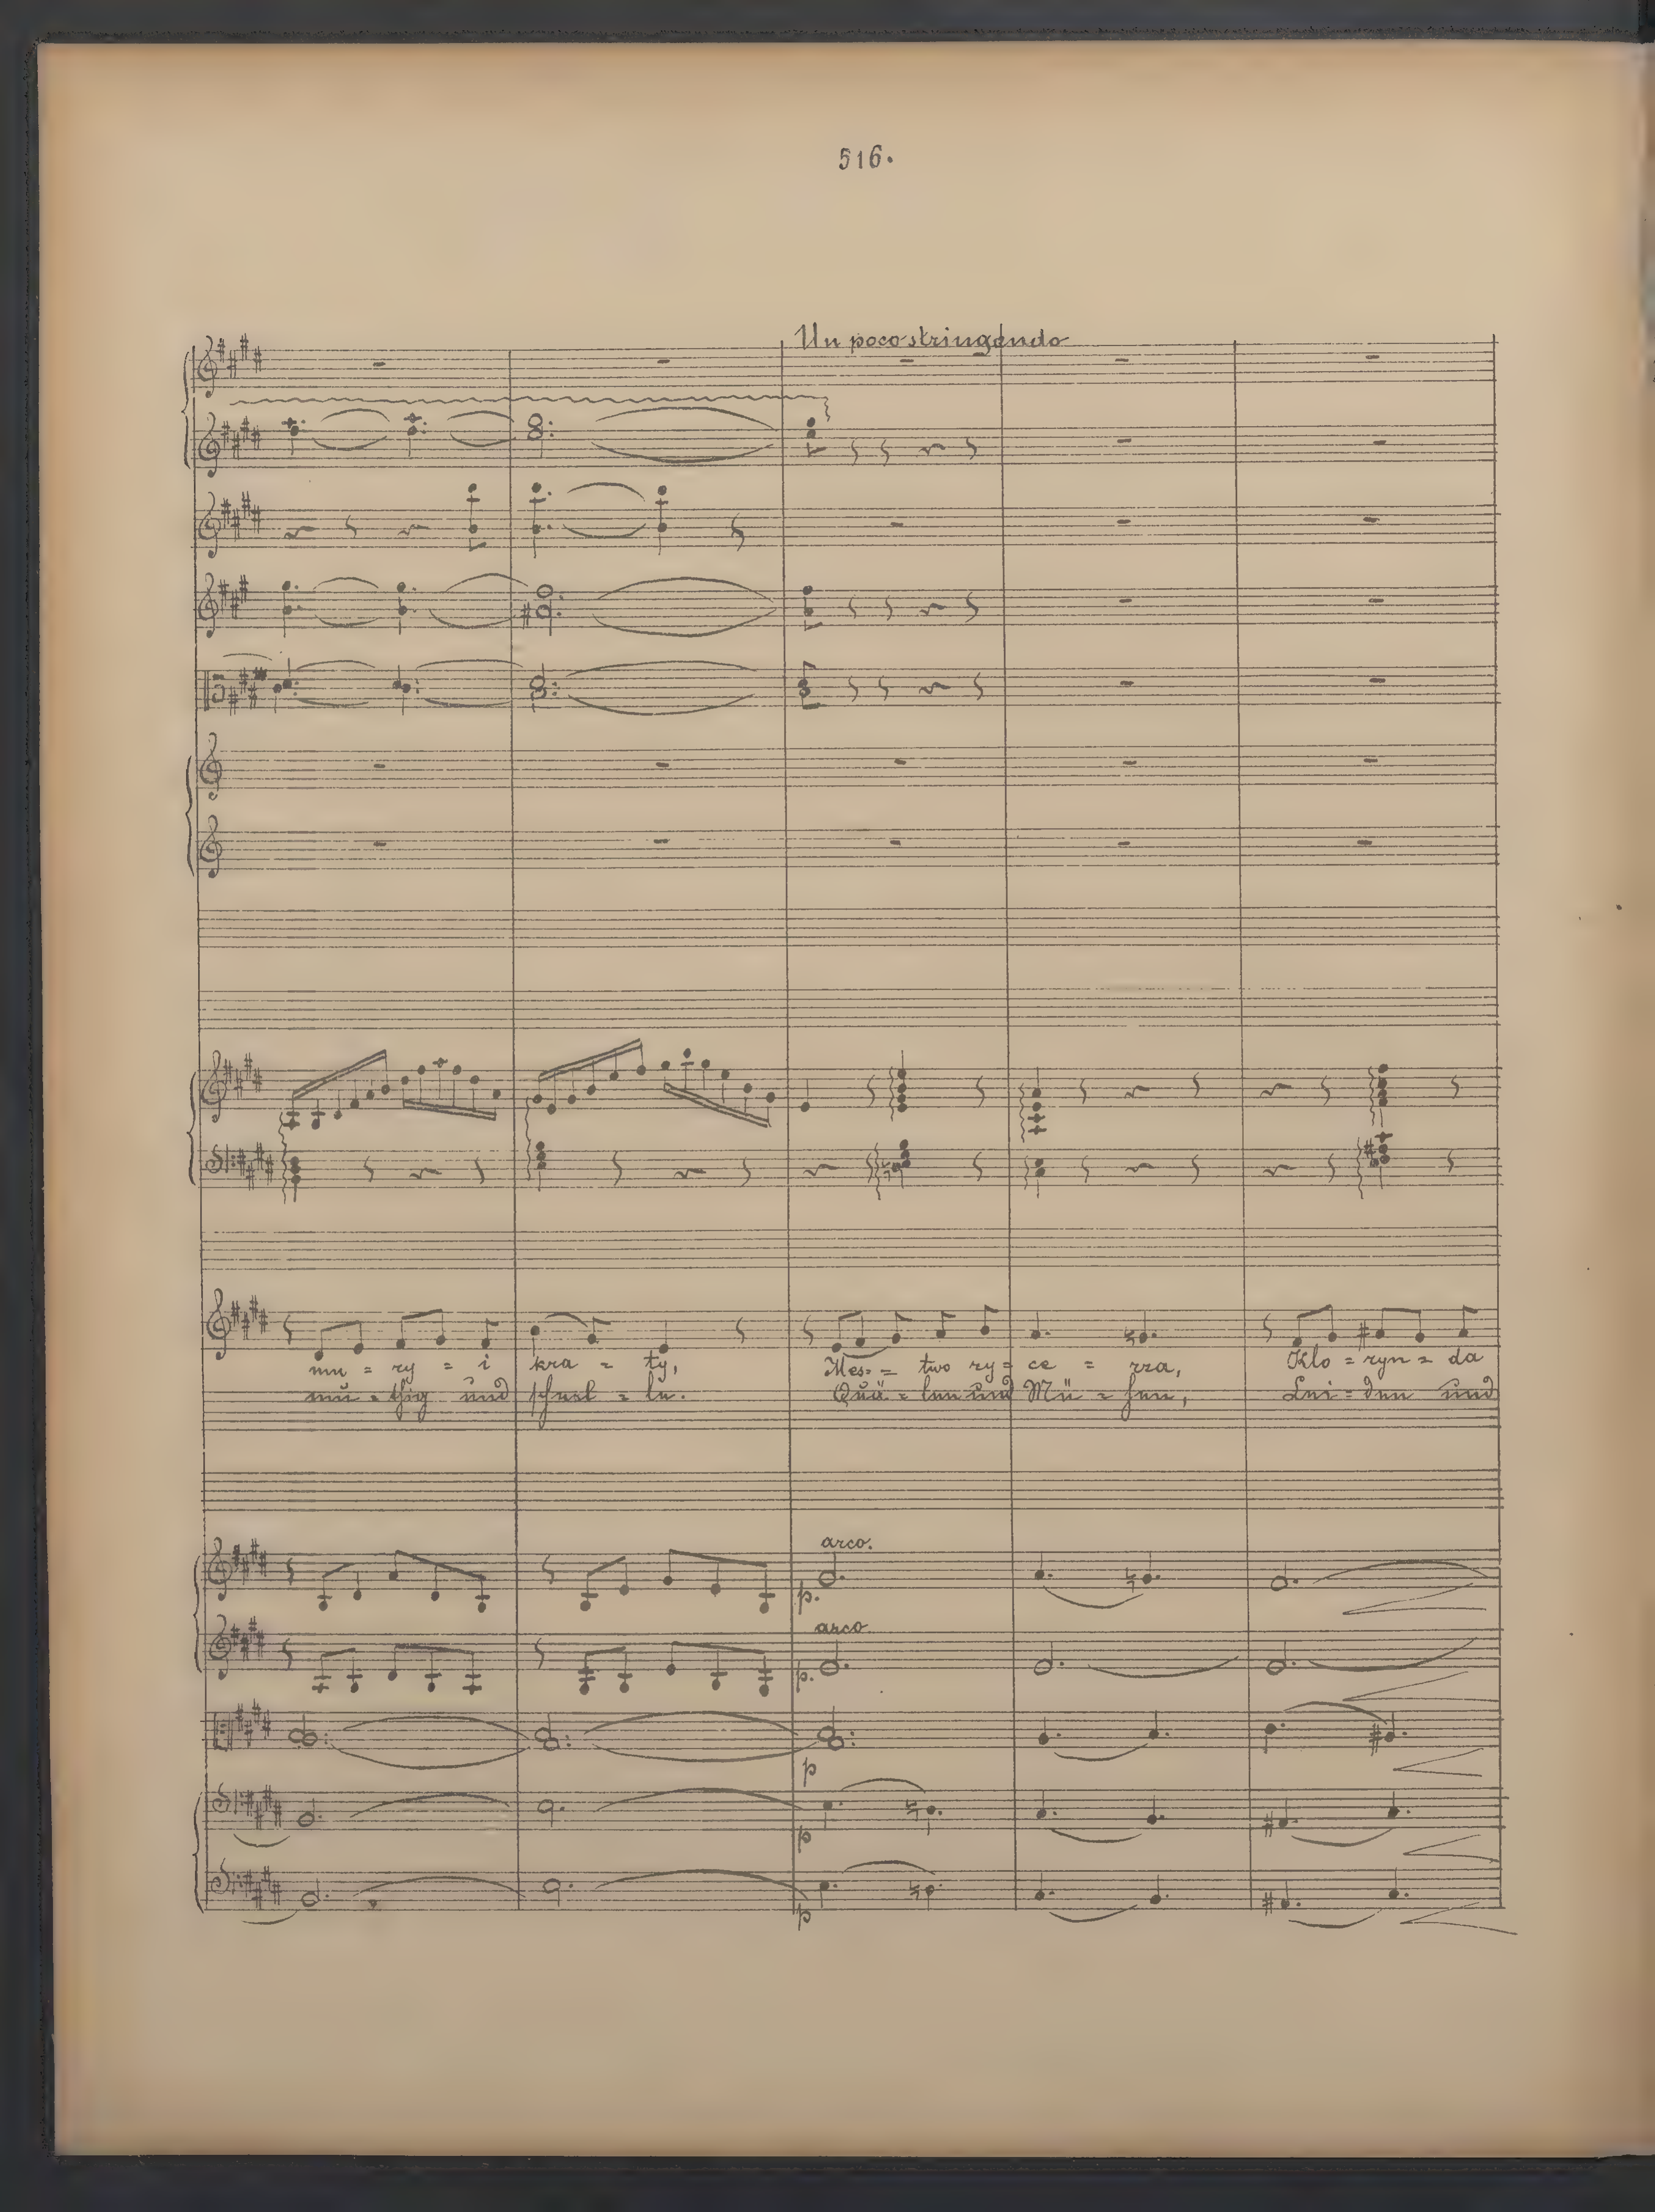 516.
Un poco stringendo
mu = ry = i kra = ty, Mes = two ry = ce = rza, Klo = ryn = da
mü = thig und schnel = le. Quä = len und Mü = hen, Lei = den und
arco.
p.
arco.
p.
p
p
p